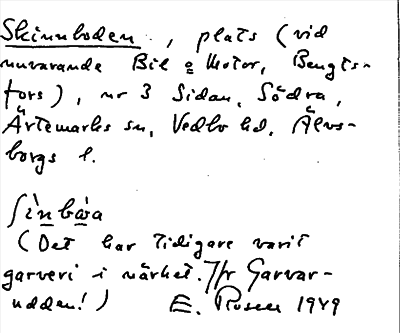 Skinnboden, plats (vid
nuvarande Bil & Motor, Bengts-
fors), nr 3 Sidan, Södra,
Ärtemarks sn, Vedbo hd, Älvs-
borgs l.
(Det har tidigare varit
garveri i närhet. Jfr Garvar-
udden!) E. Rosell 1949